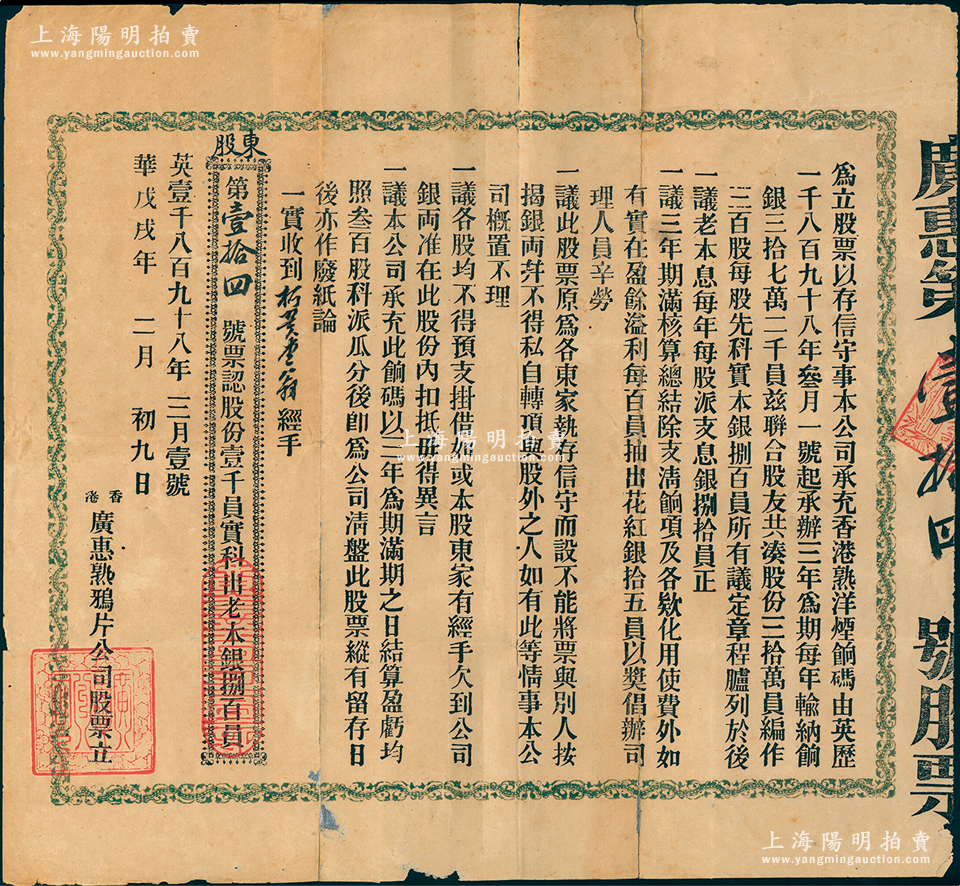 上海陽明拍賣
www.yangmingauction.com
廣惠第壹拾四號股票
為立股票以存信守事本公司承充香港熟洋煙餉碼由英歷
一千八百九十八年叁月一號起承辦三年為期每年輸納餉
銀三拾七萬二千員茲聯合股友共湊股份三拾萬員編作
三百股每股先科實本銀捌百員所有議定章程臚列於後
一議老本息每年每股派支息銀捌拾員正
一議三年期滿核算總結除支淸餉項及各欵化用使費外如
有實在盈餘溢利每百員抽出花紅銀拾五員以獎倡辦司
理人員辛勞
一議此股票原為各東家執存信守而設不能將票與別人按
揭銀両幷不得私自轉頂與股外之人如有此等情事本公
司概置不理
一議各股均不得預支掛借倘或本股東家有經手欠到公司
銀両准在此股份內扣抵毋得異言
一議本公司承充此餉碼以三年為期滿期之日結算盈虧均
照叁百股科派瓜分後卽為公司淸盤此股票縱有留存日
後亦作廢紙論
一實收到 經手
東股
第壹拾四號票認股份壹千員實科出老本銀捌百員
英壹千八百九十八年三月壹號
華戊戌年二月初九日
香港廣惠熟鴉片公司股票立
上海陽明拍賣
www.yangmingauction.com
上海陽明拍賣
www.yangmingauction.com